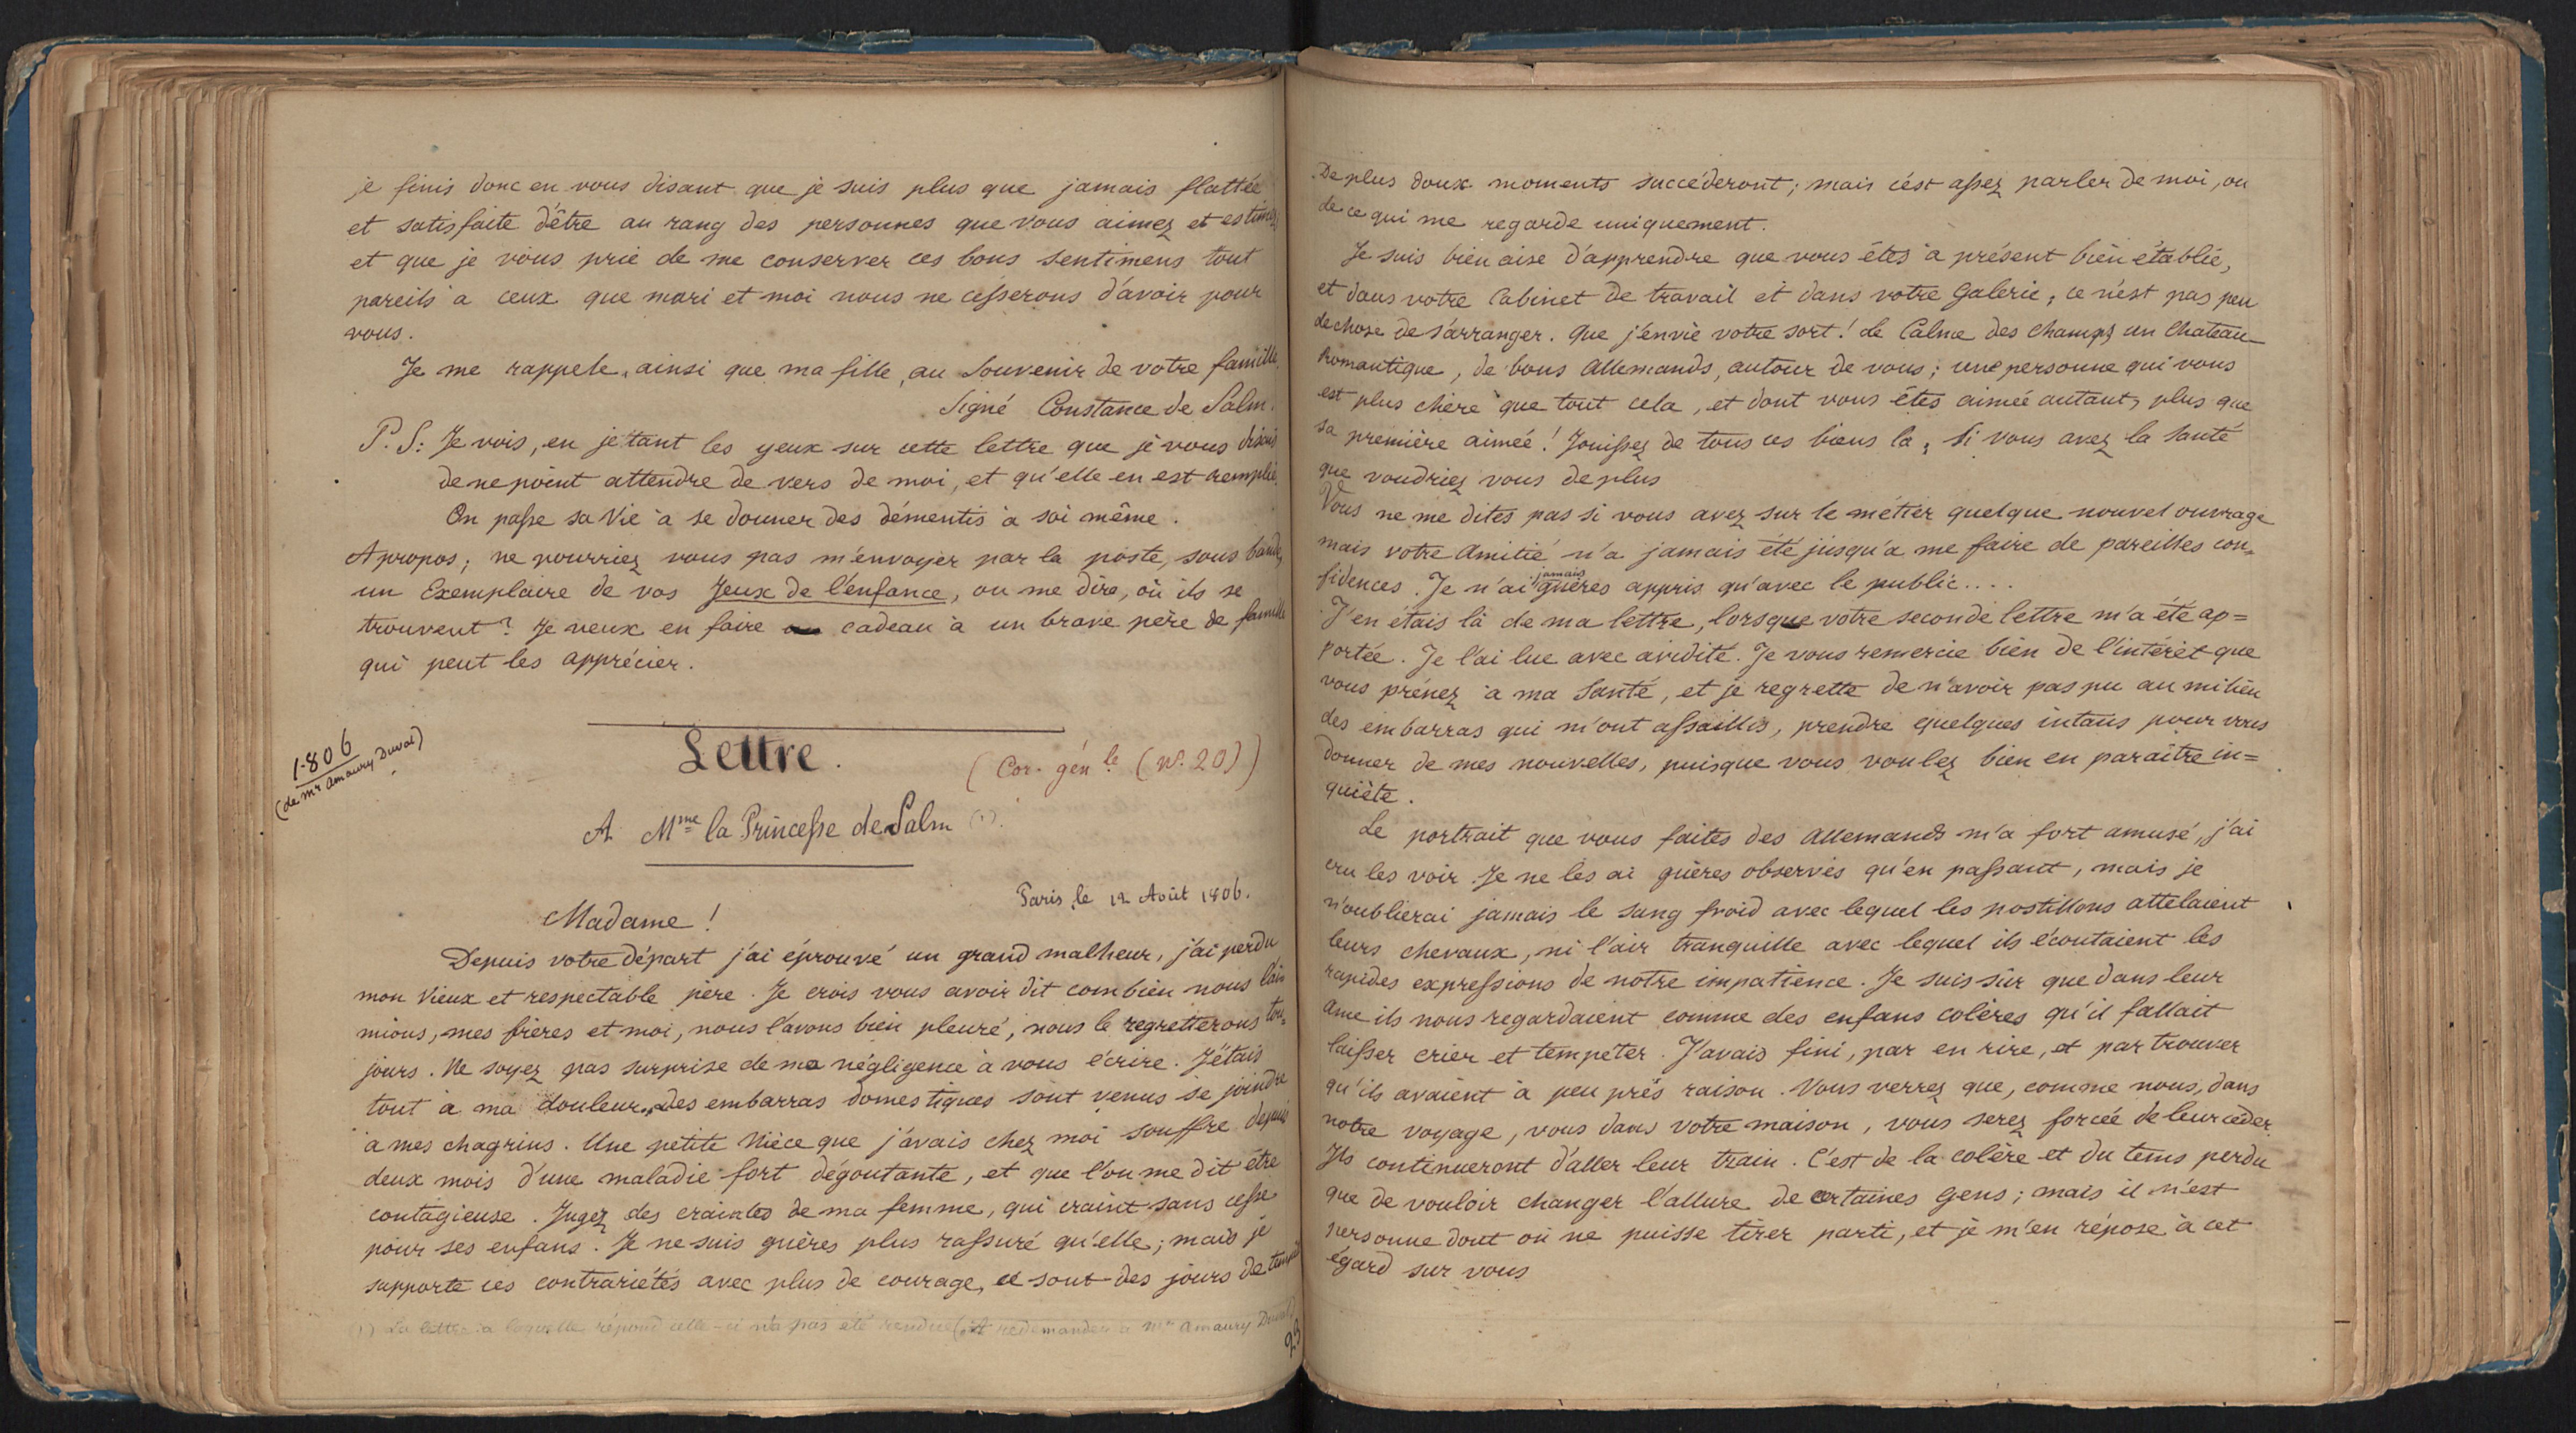 je finis donc en vous disant que je suis plus que jamais flattée
et satisfaite d'être au rang des personnes que vous aimez et estimez;
et que je vous prie de me conserver ces bons sentimens tout
pareils à ceux que mari et moi nous ne cesserons d'avoir pour
vous.
Je me rappele, ainsi que ma fille, au Souvenir de votre famille,
Signé Constance de Salm.
P. S: Je vois, en jetant les yeux sur cette lettre que je vous disais
de ne point attendre de vers de moi, et qu'elle en est remplie.
On passe sa Vie à se donner des démentis à soi même.
Apropos; ne pourriez vous pas m'envoyer par la poste, sous bande,
un Exemplaire de vos Jeux de l'enfance, ou me dire, où ils se
trouvent? Je veux en faire cadeau à un brave père de famille
qui peut les apprécier.
1806
(de mr amaury Duval)
Lettre.
(Cor. génle. (No. 20))
A Mme la Princesse de Salm (1).
Paris, le 12 Août 1806.
Madame!
Depuis votre départ j'ai éprouvé un grand malheur, j'ai perdu
mon Vieux et respectable père. Je crois vous avoir dit combien nous l'ai
mions, mes frères et moi, nous l'avons bien pleuré, nous le regretterons tou=
jours. Ne soyez pas surprise de ma négligence à vous écrire. J'étais
tout à ma douleur, des embarras domestiques sont venus se joindre
à mes chagrins. Une petite Nièce que j'avais chez moi souffre depuis
deux mois d'une maladie fort dégoutante, et que l'on me dit être
contagieuse. Jugez des craintes de ma femme, qui craint sans cesse
pour ses enfans. Je ne suis guères plus rassuré qu'elle; mais je
supporte ces contrariétés avec plus de courage, ce sont des jours de tempête
(1) La lettre à laquelle répond celle-ci n'a pas été rendue (à redemander à mr amaury Duval)
23
De plus doux moments succéderont; mais c'est assez parler de moi, ou
de ce qui me regarde uniquement.
Je suis bien aise d'apprendre que vous êtes à présent bien établie,
et dans votre Cabinet de travail et dans votre Galerie; ce n'est pas peu
de chose de s'arranger. Que j'envie votre sort! le Calme des champs un Chateau
Romantique, de bons Allemands, autour de vous; une personne qui vous
est plus chère que tout cela, et dont vous êtes aimée autant, plus que
sa première aimée! Jouissez de tous ces biens là, Si vous avez la santé
que voudriez vous de plus
Vous ne me dites pas si vous avez sur le métier quelque nouvel ouvrage
mais votre Amitié n'a jamais été jusqu'à me faire de pareilles con=
fidences. Je n'ai jamais guères appris qu'avec le public....
J'en étais là de ma lettre, lorsque votre seconde lettre m'a été ap=
portée. Je l'ai lue avec avidité. Je vous remercie bien de l'intérêt que
vous prénez à ma Santé, et je regrette de n'avoir pas pu au milieu
des embarras qui m'ont assaillis, prendre quelques intans pour vous
donner de mes nouvelles, puisque vous voulez bien en paraître in=
quiète.
Le portrait que vous faites des Allemands m'a fort amusé, j'ai
cru les voir. Je ne les ai guères observés qu'en passant, mais je
n'oublierai jamais le sang froid avec lequel les postillons attelaient
leurs chevaux, ni l'air tranquille avec lequel ils écoutaient les
rapides expressions de notre impatience. Je suis sûr que dans leur
ame ils nous regardaient comme des enfans colères qu'il fallait
laisser crier et tempêter. J'avais fini, par en rire, et par trouver
qu'ils avaient à peu près raison. Vous verrez que, comme nous, dans
notre voyage, vous dans votre maison, vous serez forcée de leur céder.
Ils continueront d'aller leur train. C'est de la colère et du tems perdu
que de vouloir changer l'allure de certaines Gens; mais il n'est
personne dont on ne puisse tirer parti, et je m'en répose à cet
égard sur vous